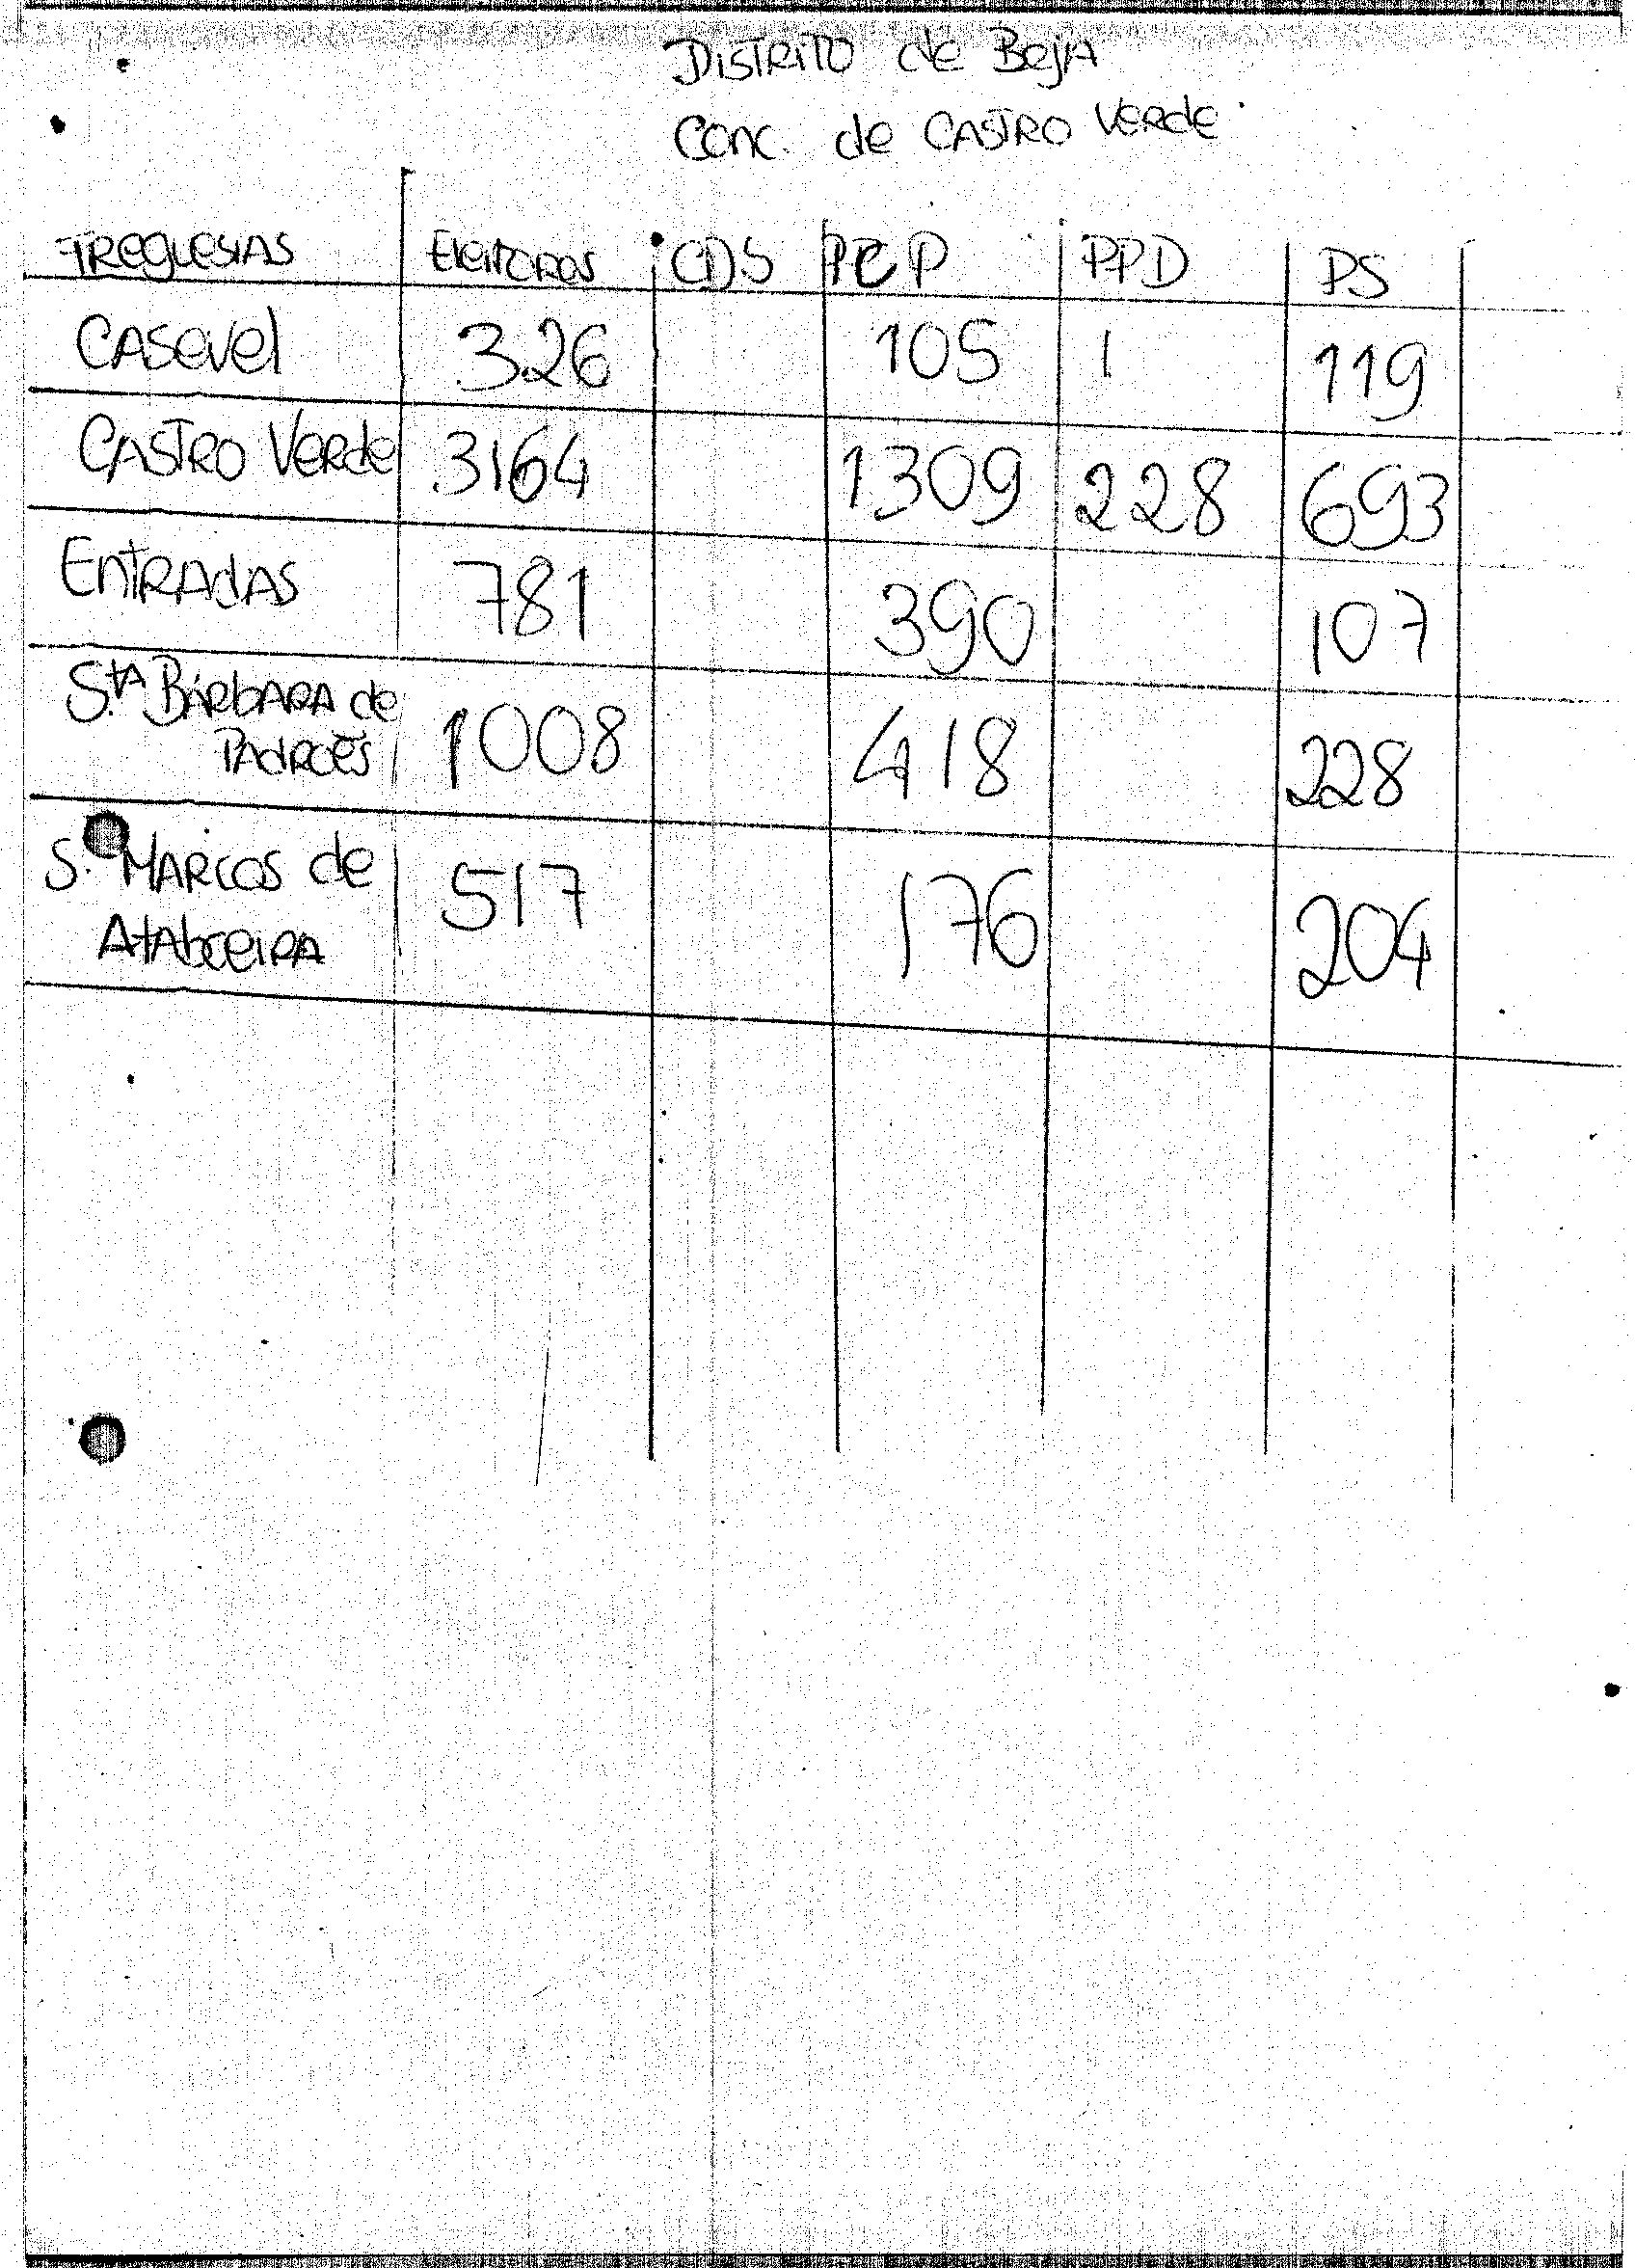 Distrito de Beja
Conc. de Castro Verde
Freguesias Eleitores CDS PCP PPD PS
Casevel 326 105 1 119
Castro Verde 3164 1309 228 693
Entradas 781 390 107
S.ta Bárbara de
Padrões 1008 418 228
S. Marcos de
Atabueira 517 176 204